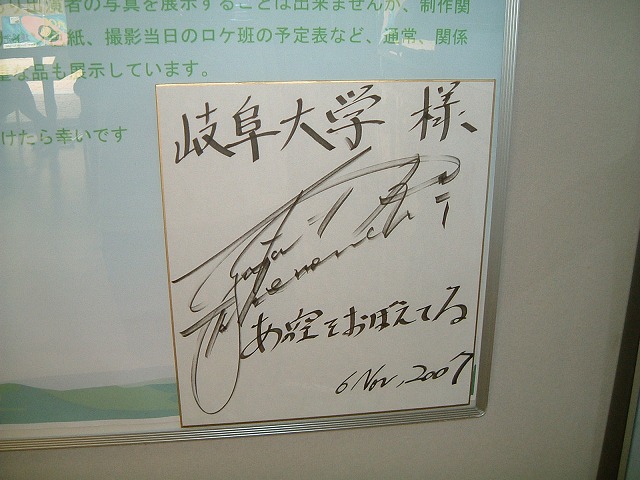 者の写真を展示することは出来ませんが、制作関
紙、撮影当日のロケ班の予定表など、通常、関係
な品も展示しています。
けたら幸いです
岐阜大学 様、
あの空をおぼえてる
6 Nov, 2007